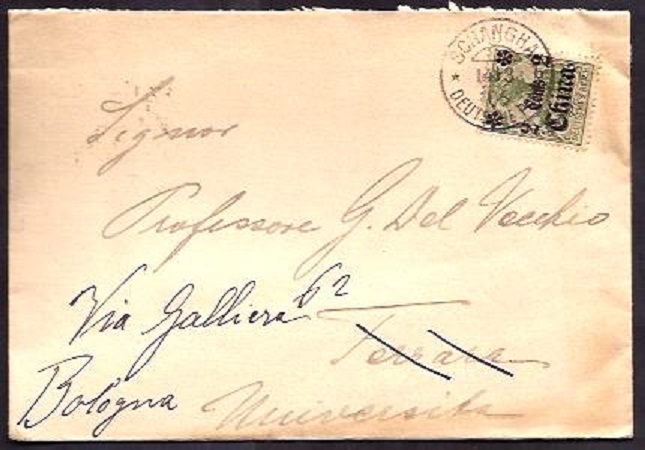 SCHANGHAI
DEUTSCHE
China
Signor
Professore G. Del Vecchio
Via Galliera 62
Ferrara
Bologna
Universita